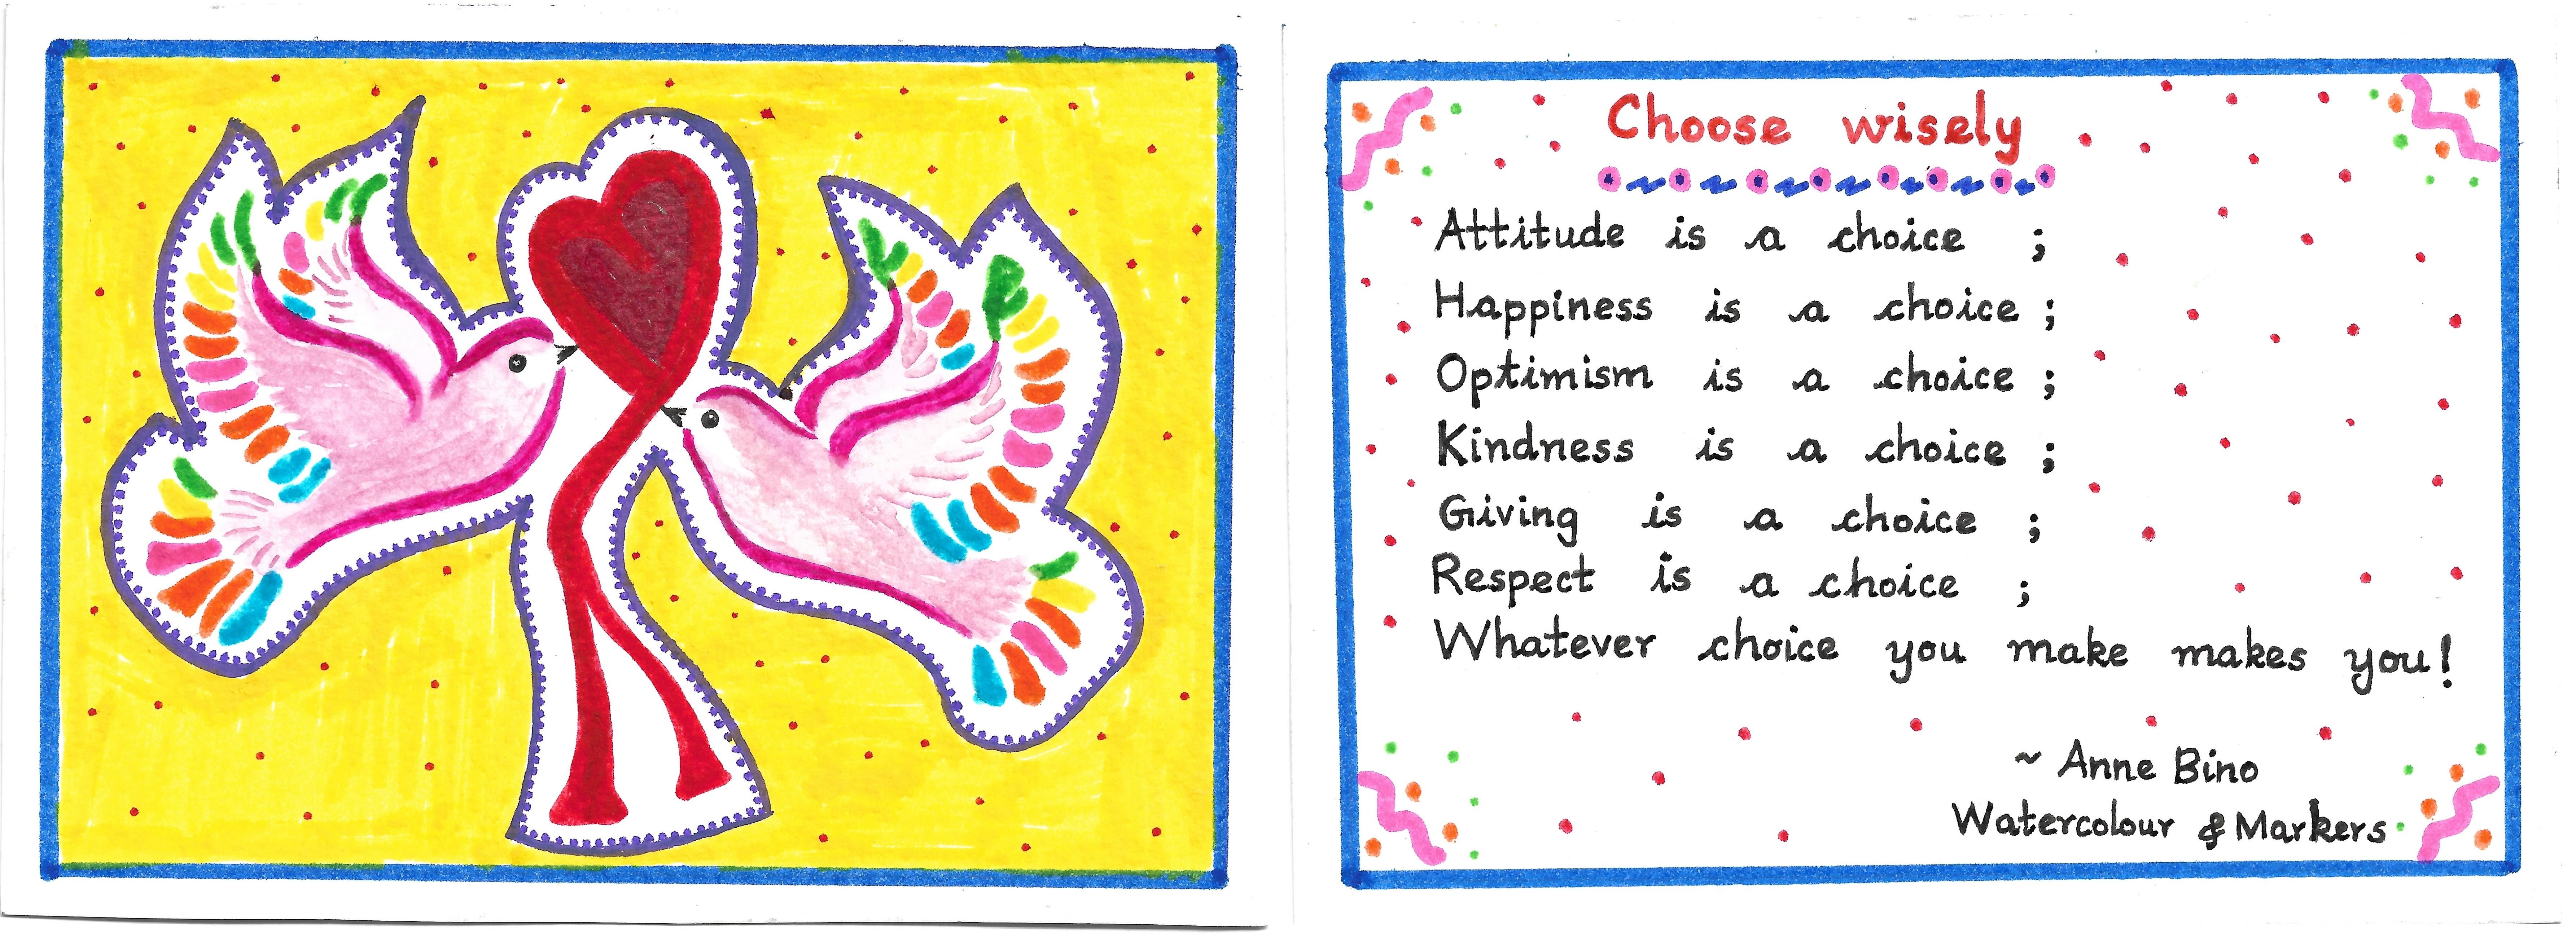 Choose wisely
Attitude is a choice ;
Happiness is a choice ;
Optimism is a choice ;
Kindness is a choice ;
Giving is a choice ;
Respect is a choice ;
Whatever choice you make makes you!
~ Anne Bino
Watercolour & Markers